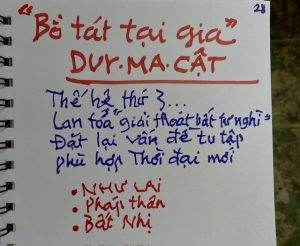 28
"Bồ tát tại gia"
DUY-MA-CẬT
Thế hệ thứ 3...
Lan toả "giải thoát bất tư nghì"
Đặt lại vấn đề tu tập
phù hợp Thời đại mới
• NHƯ LAI
• Pháp thân
• Bất Nhị